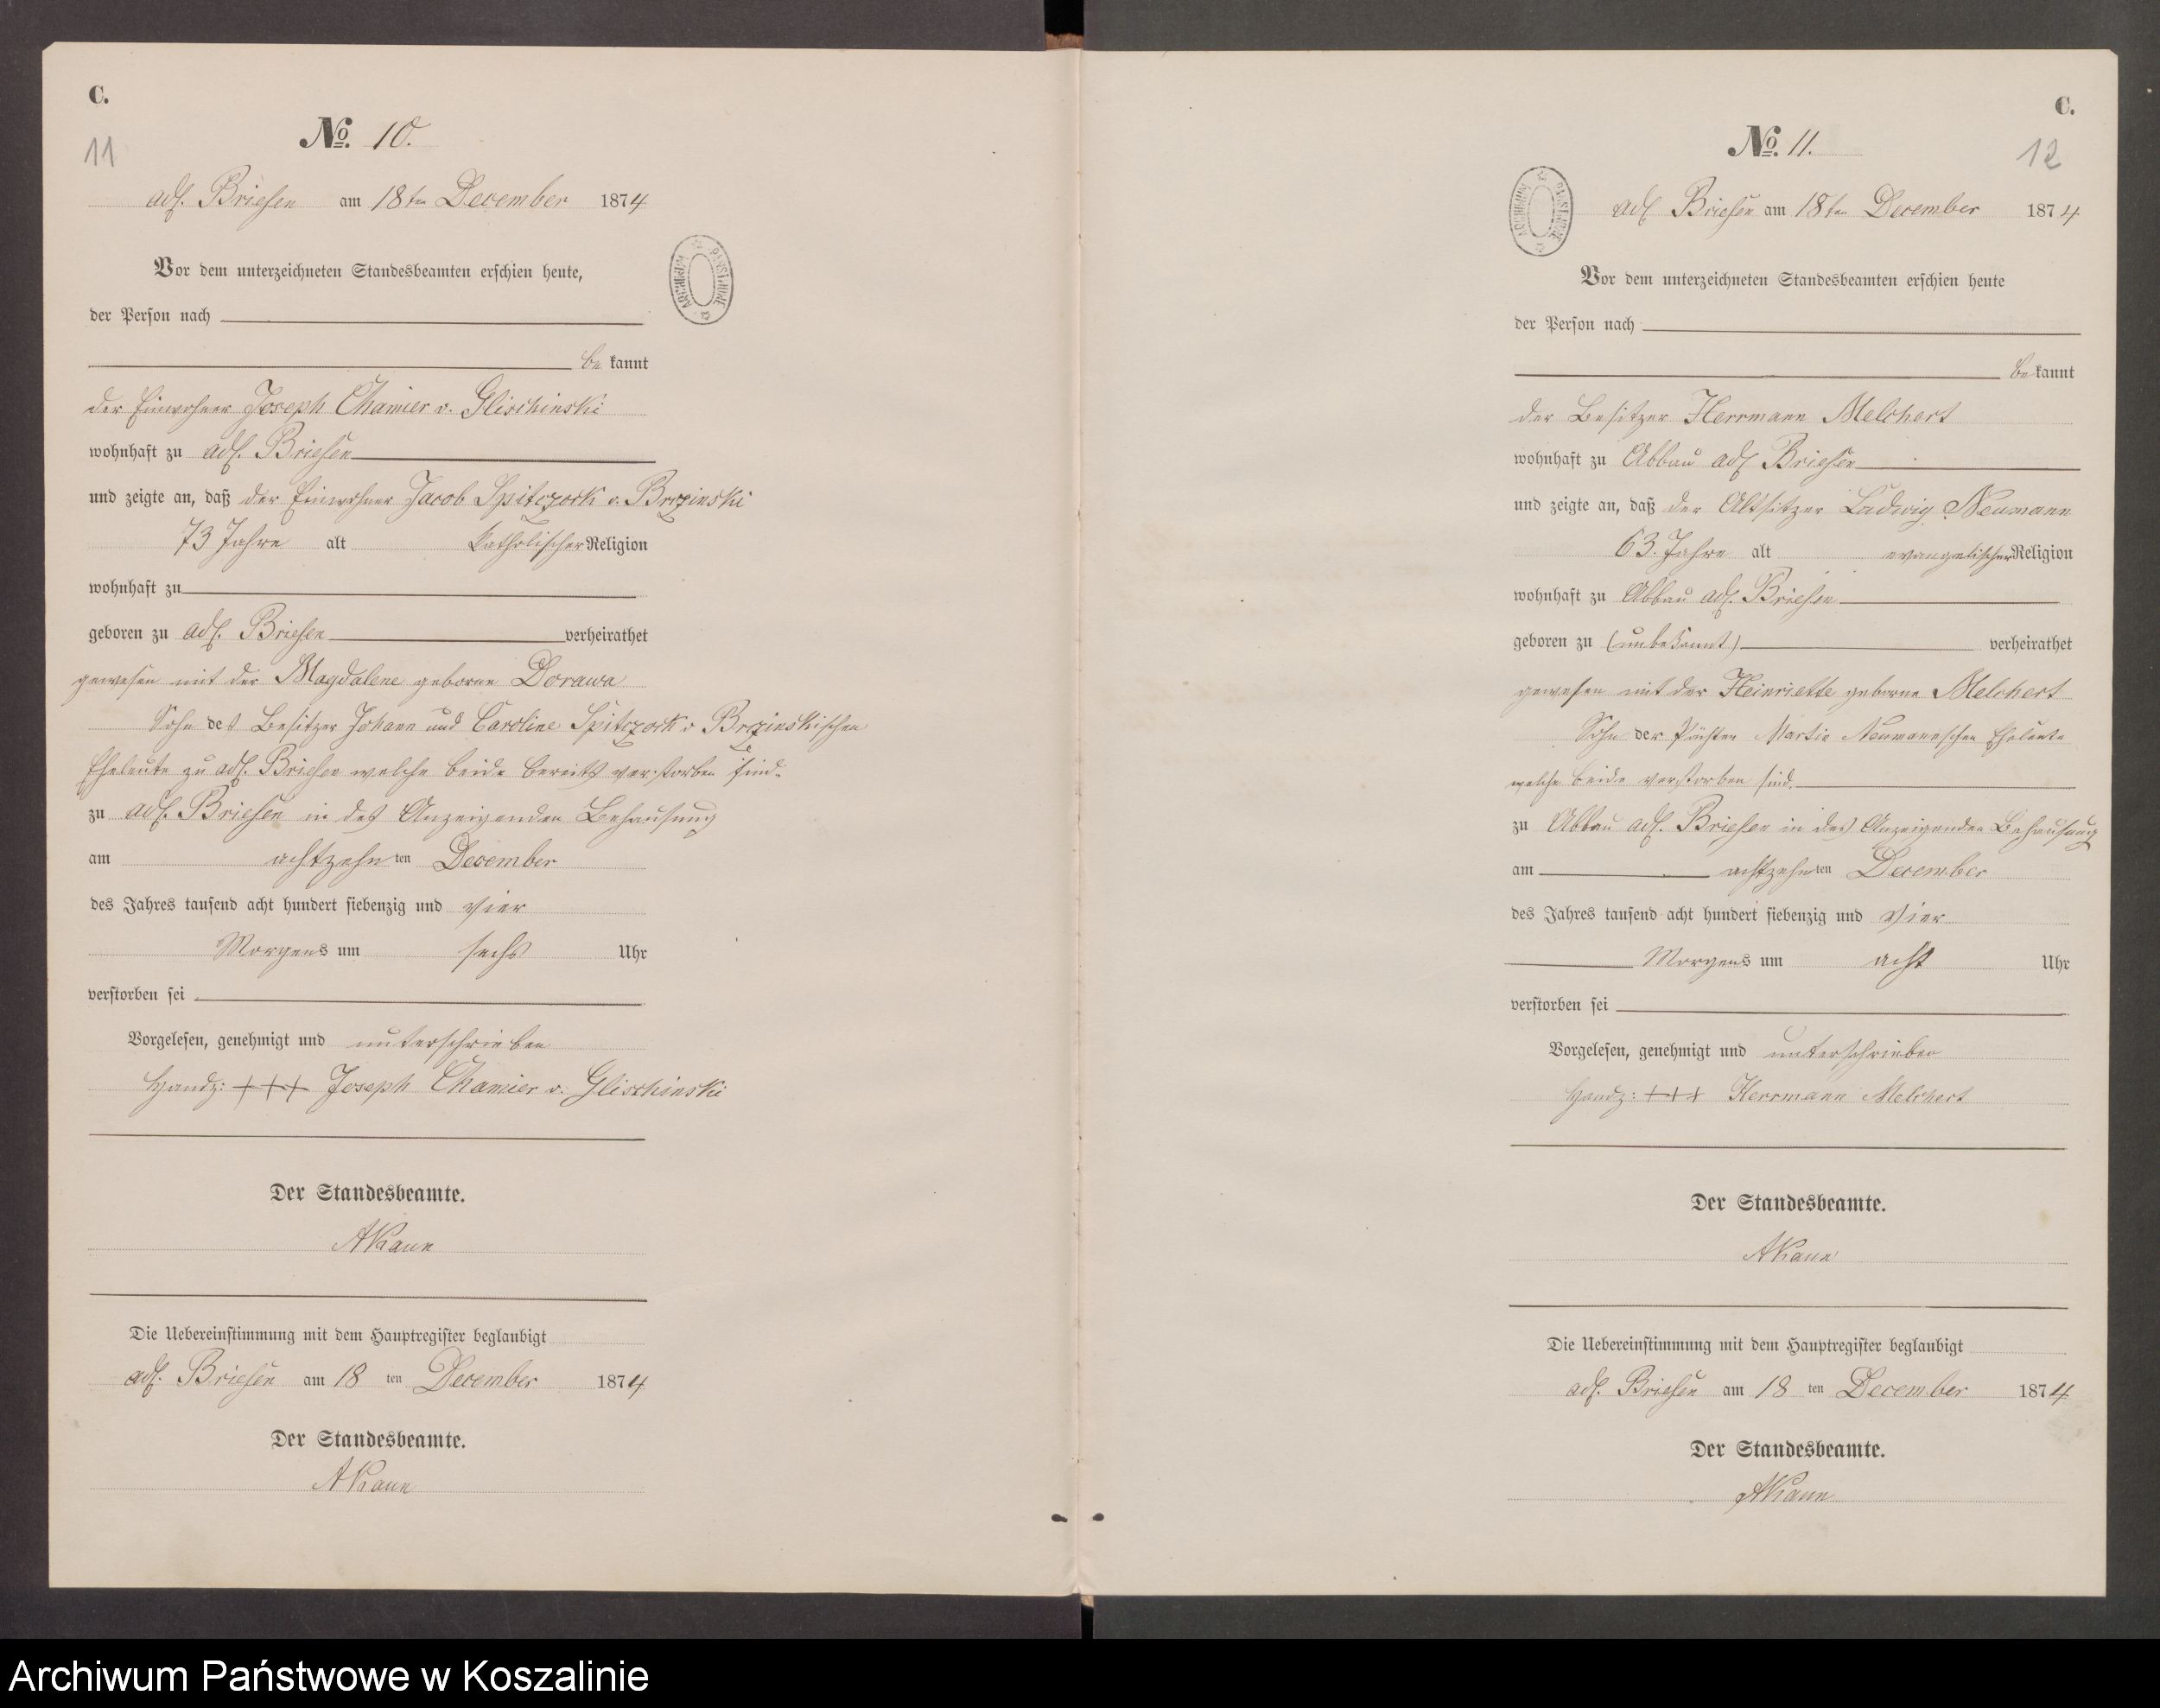 C.
11
№. 10.
adl. Briesen am 18ten December 1874
Vor dem unterzeichneten Standesbeamten erschien heute,
der Person nach
be kannt
der Einwohner Joseph Chamier v. Glischinski
wohnhaft zu adl. Briesen
und zeigte an, daß der Einwohner Jacob Spitczock v. Brzinski
73 Jahre alt katholischer Religion
wohnhaft zu
geboren zu adl. Briesen verheirathet
gewesen mit der Magdalene geborne Dorawa
Sohn des Besitzer Johann und Caroline Spitczock v Brzinskischen
Eheleute zu adl. Briesen welche beide bereits verstorben sind.
zu adl. Briesen in des Anzeigenden Behausung
am achtzehn ten December
des Jahres tausend acht hundert siebenzig und vier
Morgens um sechs Uhr
verstorben sei
Vorgelesen, genehmigt und unterschrieben
Handz: +++ Joseph Chamier v. Glischinski
Der Standesbeamte.
AKaun
Die Uebereinstimmung mit dem Hauptregister beglaubigt
adl. Briesen am 18 ten December 1874
Der Standesbeamte.
AKaun
C.
12
№. 11.
ARCHIWUM PAŃSTWOWE
adl Briesen am 18ten December 1874
Vor dem unterzeichneten Standesbeamten erschien heute
der Person nach
be kannt
der Besitzer Herrmann Melchert
wohnhaft zu Abbau adl Briesen
und zeigte an, daß der Altsitzer Ludwig Neumann
63. Jahre alt evangelischer Religion
wohnhaft zu Abbau adl. Briesen
geboren zu (unbekannt) verheirathet
gewesen mit der Heinriette geborne Melchert
Sohn der Martin Neumannschen Eheleute
welche beide verstorben sind.
zu Abbau adl. Briesen in des Anzeigenden Behausung
am achtzehn ten December
des Jahres tausend acht hundert siebenzig und vier
Morgens um acht Uhr
verstorben sei
Vorgelesen, genehmigt und unterschrieben
Handz: +++ Herrmann Melchert
Der Standesbeamte.
AKaun
Die Uebereinstimmung mit dem Hauptregister beglaubigt
adl. Briesen am 18 ten December 1874
Der Standesbeamte.
AKaun
Archiwum Państwowe w Koszalinie